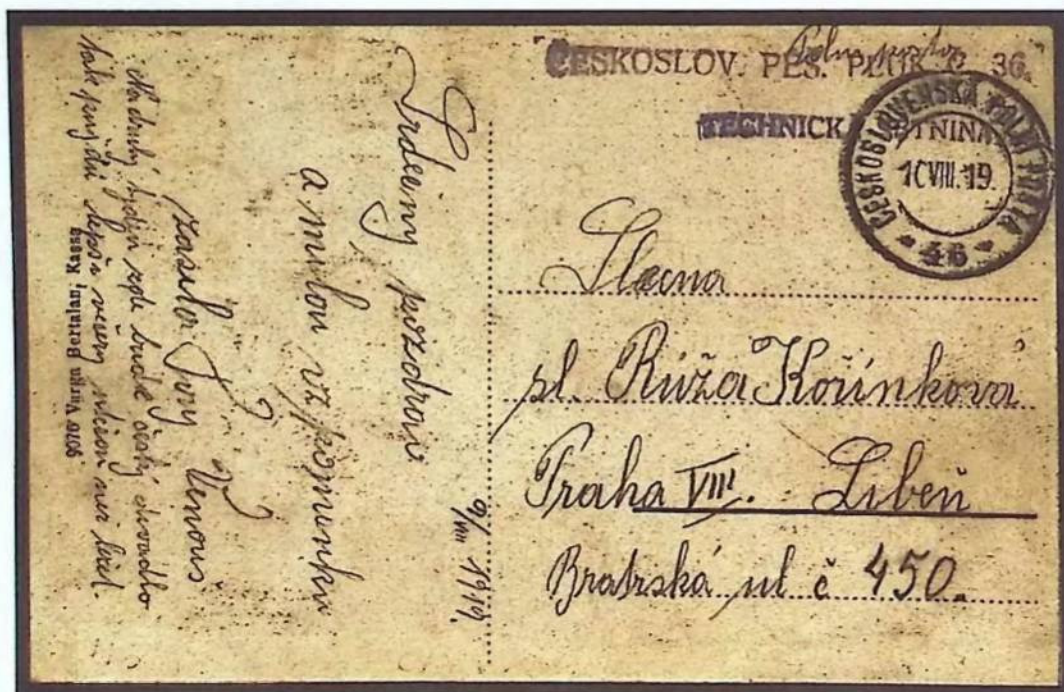 Polní pošta
ČESKOSLOV. PĚŠ. PLUK Č. 36.
TECHNICK SETNINA
ČESKOSLOVENSKÁ POLNÍ POŠTA
10 VIII. 19.
46
Slečna
sl. Růža Kořínková
Praha VIII. Libeň
Bratrská ul č 450.
9/VIII 1919.
Srdečný pozdrav
a milou vzpomínku
zasílá Tvůj Venouš
Na druhý týden zde bude český divadlo
tak przy dni lepší večery
9076 Vitéz Bertalan, Kassa